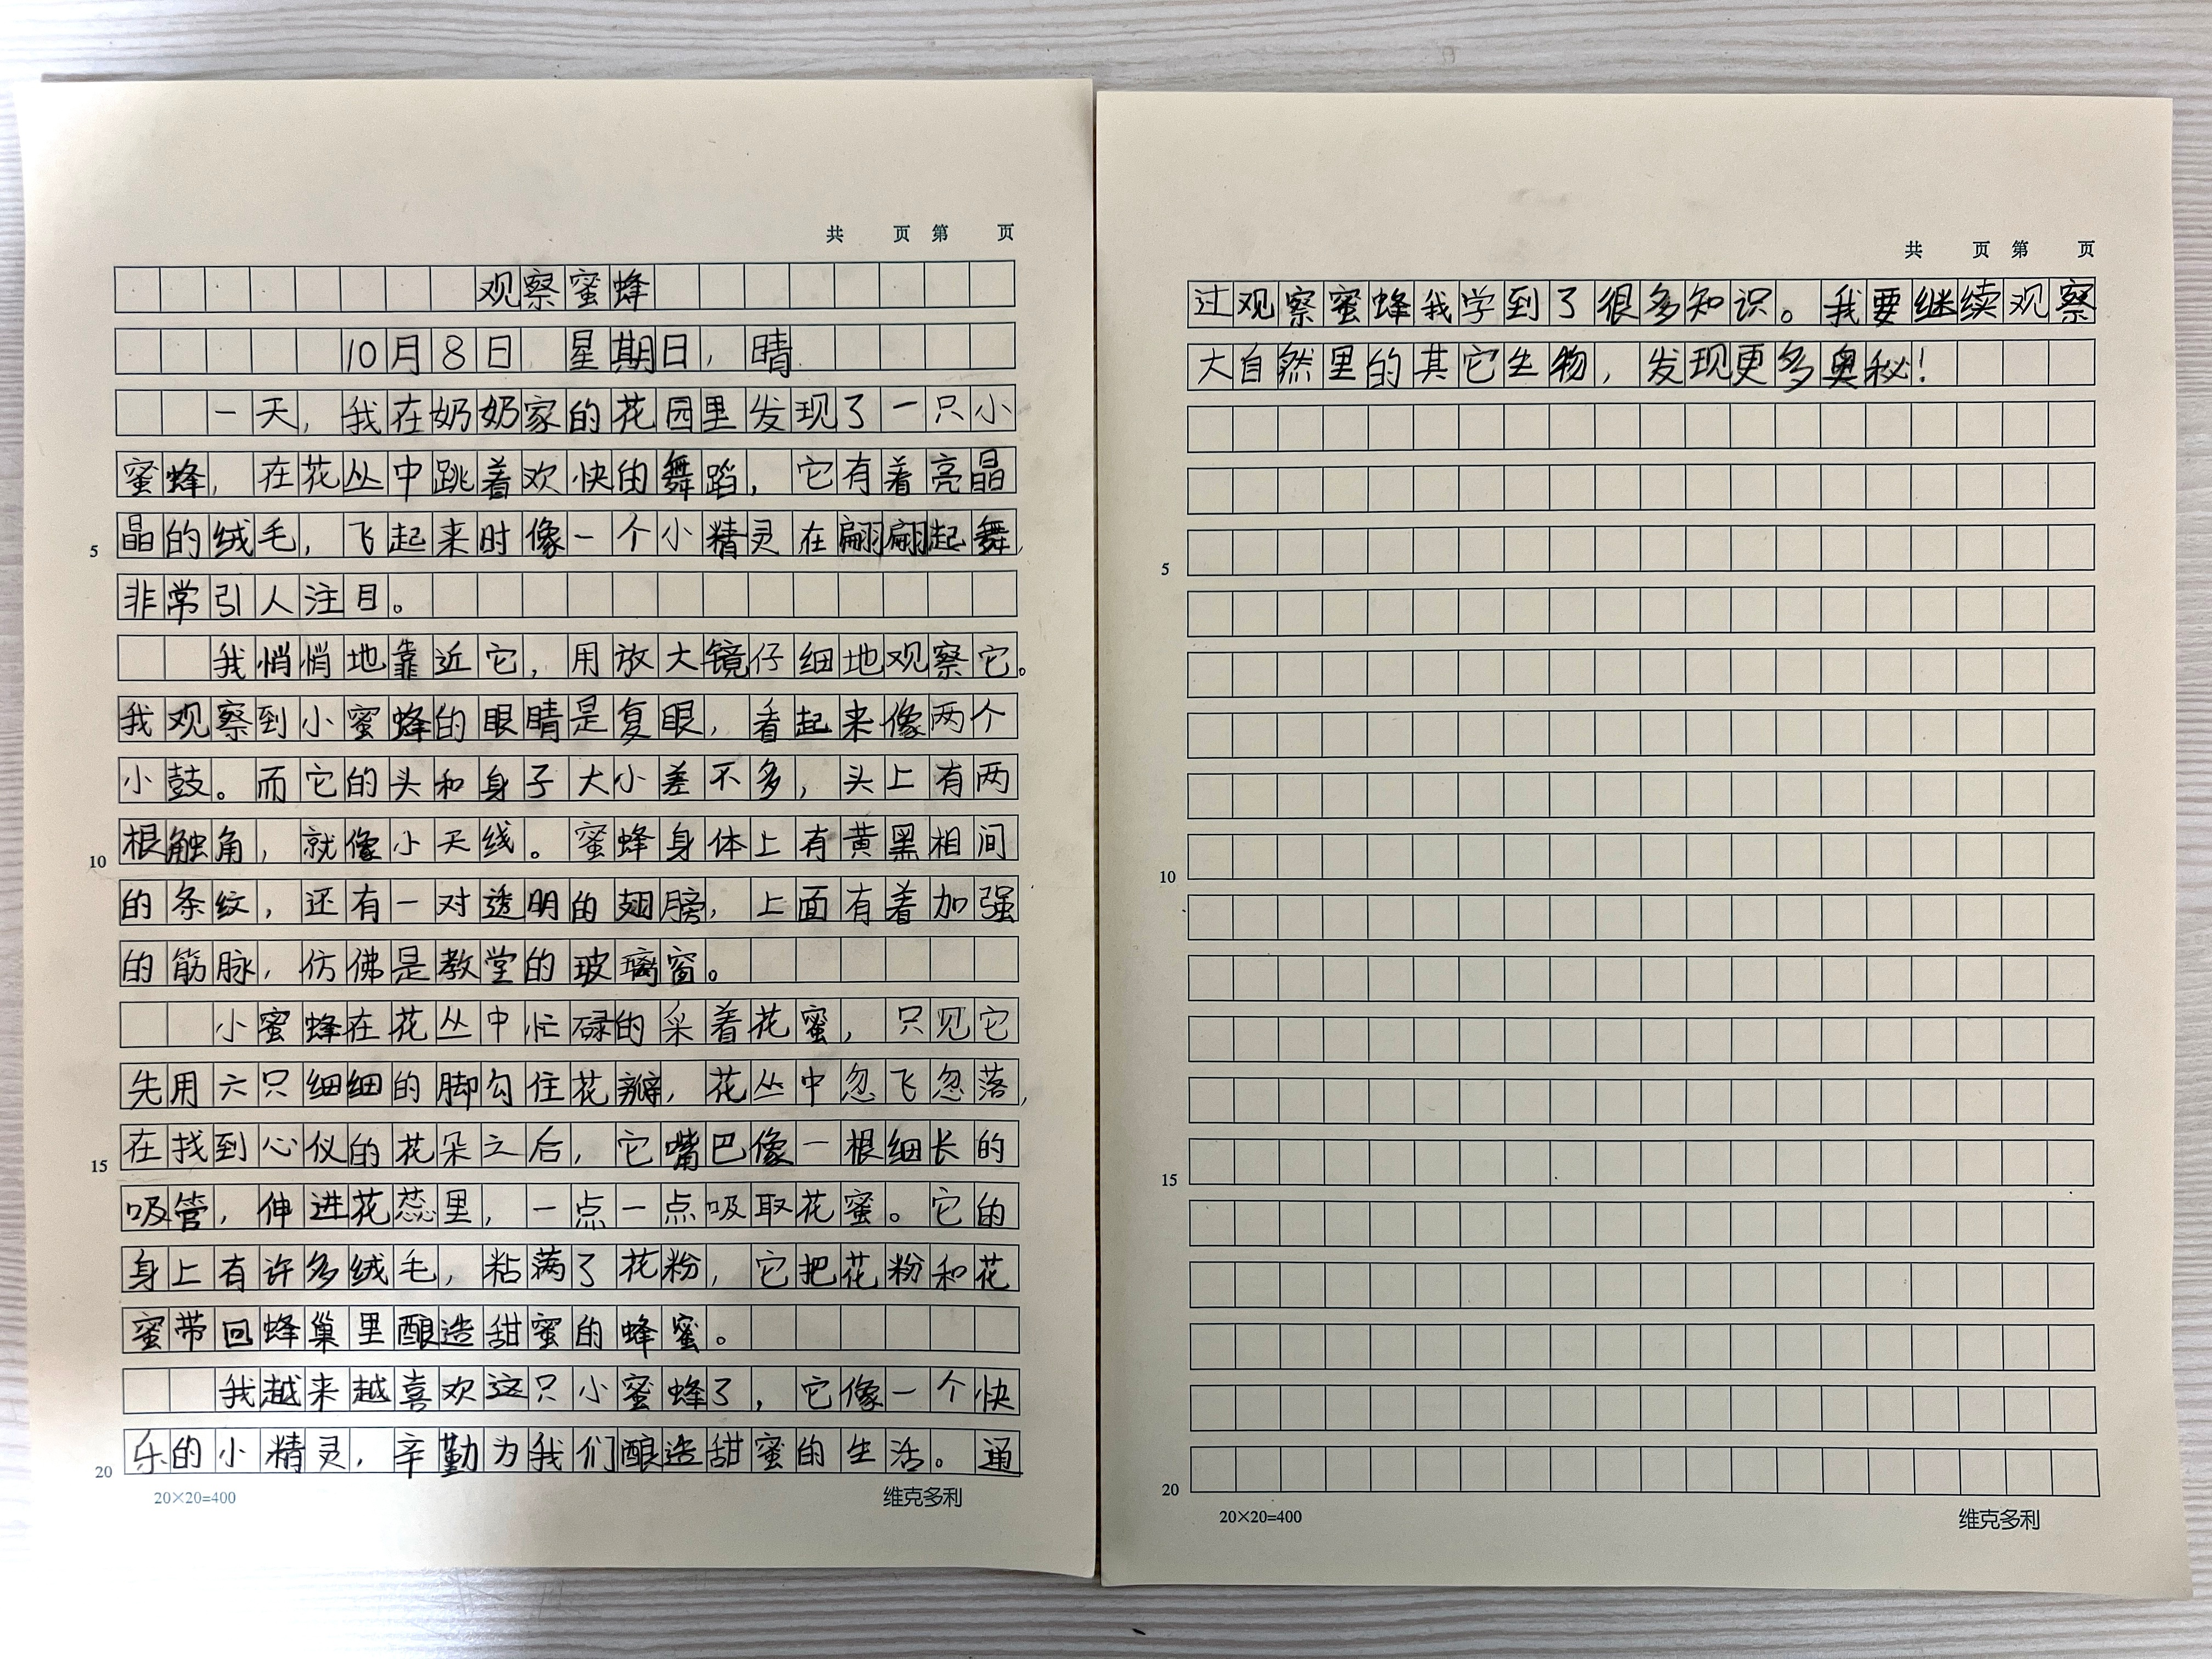 共 页 第 页
观察蜜蜂
10月8日 星期日，晴
一天，我在奶奶家的花园里发现了一只小
蜜蜂，在花丛中跳着欢快的舞蹈，它有着亮晶
5 晶的绒毛，飞起来时像一个小精灵在翩翩起舞，
非常引人注目。
我悄悄地靠近它，用放大镜仔细地观察它。
我观察到小蜜蜂的眼睛是复眼，看起来像两个
小鼓。而它的头和身子大小差不多，头上有两
10 根触角，就像小天线。蜜蜂身体上有黄黑相间
的条纹，还有一对透明的翅膀，上面有着加强
的筋脉，仿佛是教堂的玻璃窗。
小蜜蜂在花丛中忙碌的采着花蜜，只见它
先用六只细细的脚勾住花瓣，花丛中忽飞忽落，
15 在找到心仪的花朵之后，它嘴巴像一根细长的
吸管，伸进花蕊里，一点一点吸取花蜜。它的
身上有许多绒毛，粘满了花粉，它把花粉和花
蜜带回蜂巢里酿造甜蜜的蜂蜜。
我越来越喜欢这只小蜜蜂了，它像一个快
20 乐的小精灵，辛勤为我们酿造甜蜜的生活。通
20×20=400 维克多利
共 页 第 页
过观察蜜蜂我学到了很多知识。我要继续观察
大自然里的其它生物，发现更多奥秘！
5
10
15
20
20×20=400 维克多利